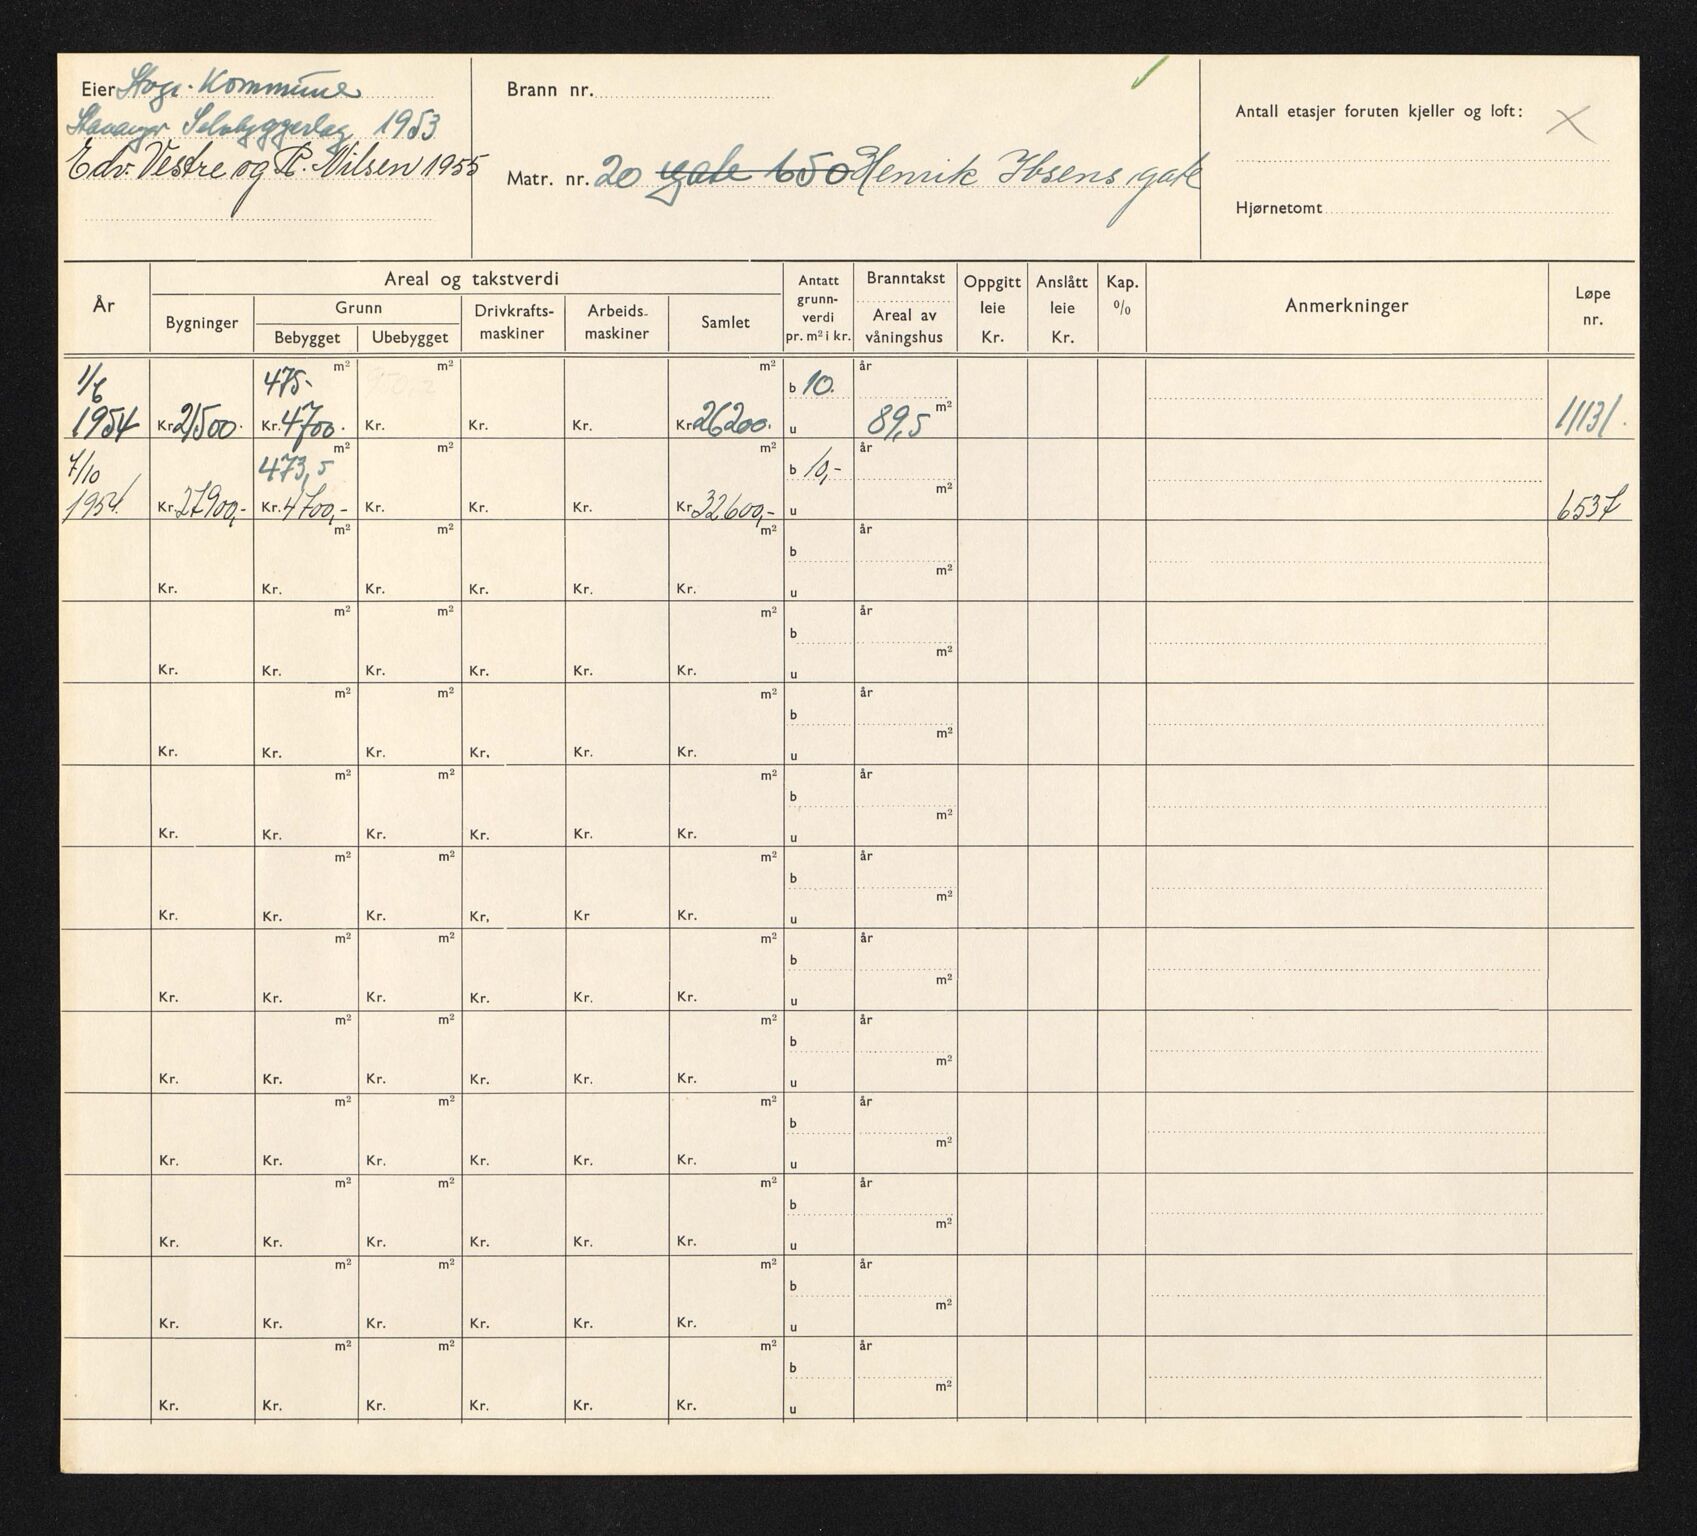 Eier Stvgr. Kommune
Stavanger Selvbyggerlag 1953
Edv. Vestre og P. Nilsen 1955
Brann nr.
Matr. nr. 20 gate 650 Henrik Ibsens gate
Antall etasjer foruten kjeller og loft:
Hjørnetomt
År
Areal og takstverdi
Bygninger
Grunn
Bebygget Ubebygget
Drivkrafts-
maskiner
Arbeids-
maskiner
Samlet
Antatt
grunn-
verdi
pr. m² i kr.
Branntakst
Areal av
våningshus
Oppgitt
leie
Kr.
Anslått
leie
Kr.
Kap.
%
Anmerkninger
Løpe
nr.
1/6 475- m² m² m² b 10. år
1954 Kr. 21500. Kr. 4700. Kr. Kr. Kr. Kr. 26200. u 89,5 m² 11131.
7/10 473,5 m² m² m² b 10,- år
1954. Kr. 27900,- Kr. 4700,- Kr. Kr. Kr. Kr. 32600,- u m² 6537
m² m² m² b år
Kr. Kr. Kr. Kr. Kr. Kr. u m²
m² m² m² b år
Kr. Kr. Kr. Kr. Kr. Kr. u m²
m² m² m² b år
Kr. Kr. Kr. Kr. Kr. Kr. u m²
m² m² m² b år
Kr. Kr. Kr. Kr. Kr. Kr. u m²
m² m² m² b år
Kr. Kr. Kr. Kr, Kr Kr. u m²
m² m² m² b år
Kr. Kr. Kr. Kr. Kr. Kr. u m²
m² m² m² b år
Kr. Kr. Kr. Kr. Kr. Kr. u m²
m² m² m² b år
Kr. Kr. Kr. Kr. Kr. Kr. u m²
m² m² m² b år
Kr. Kr. Kr. Kr. Kr. Kr. u m²
m² m² m² b år
Kr. Kr. Kr. Kr. Kr. Kr. u m²
m² m² m² b år
Kr. Kr. Kr. Kr. Kr. Kr. u m²